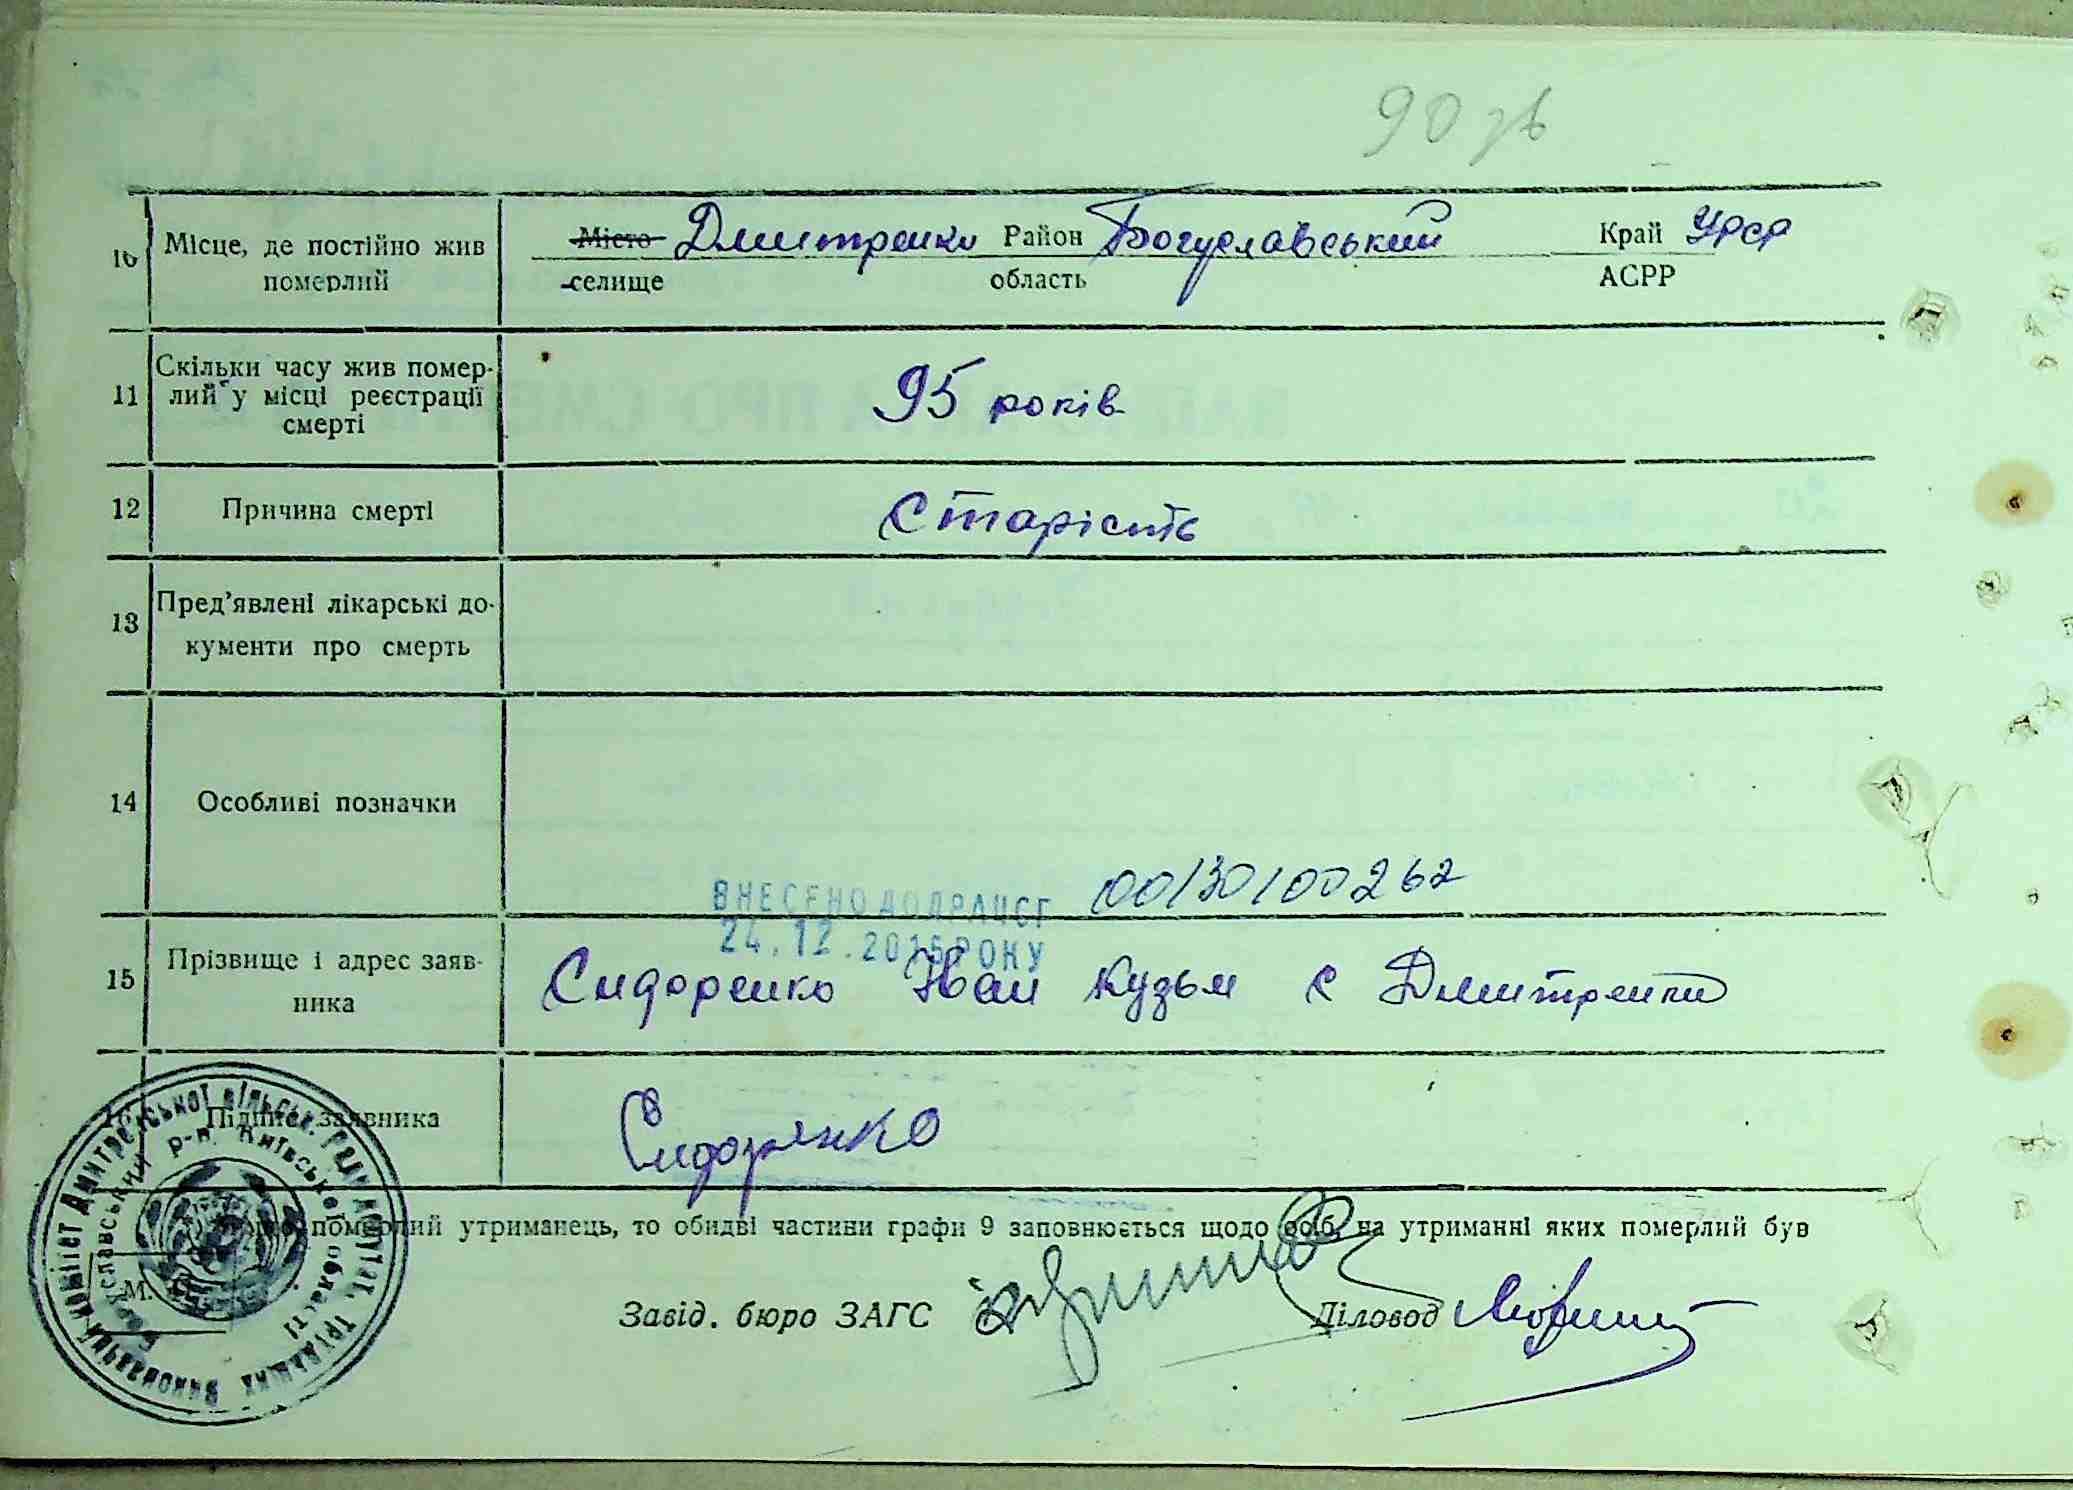 90 зв
10 Місце, де постійно жив померлий
Місто Дмитренки Район Богуславський Край Урср
селище область АСРР
11 Скільки часу жив помер-
лий у місці реєстрації
смерті
95 років
12 Причина смерті
Старість
13 Пред'явлені лікарські до-
кументи про смерть
14 Особливі позначки
ВНЕСЕНО ДО ДРАЦСГ 00130100262
24.12.2015 РОКУ
15 Прізвище і адрес заяв-
ника
Сидоренко Іван Кузьм с Дмитренки
16 Підпис заявника
Сидоренко
Виконавчий комітет Дмитренської сільськ. Ради депутат. трудящих
Богуславський р-н. Київської області
померлий утриманець, то обидві частини графи 9 заповнюється щодо осіб, на утриманні яких померлий був
М.
Завід. бюро ЗАГС Діловод